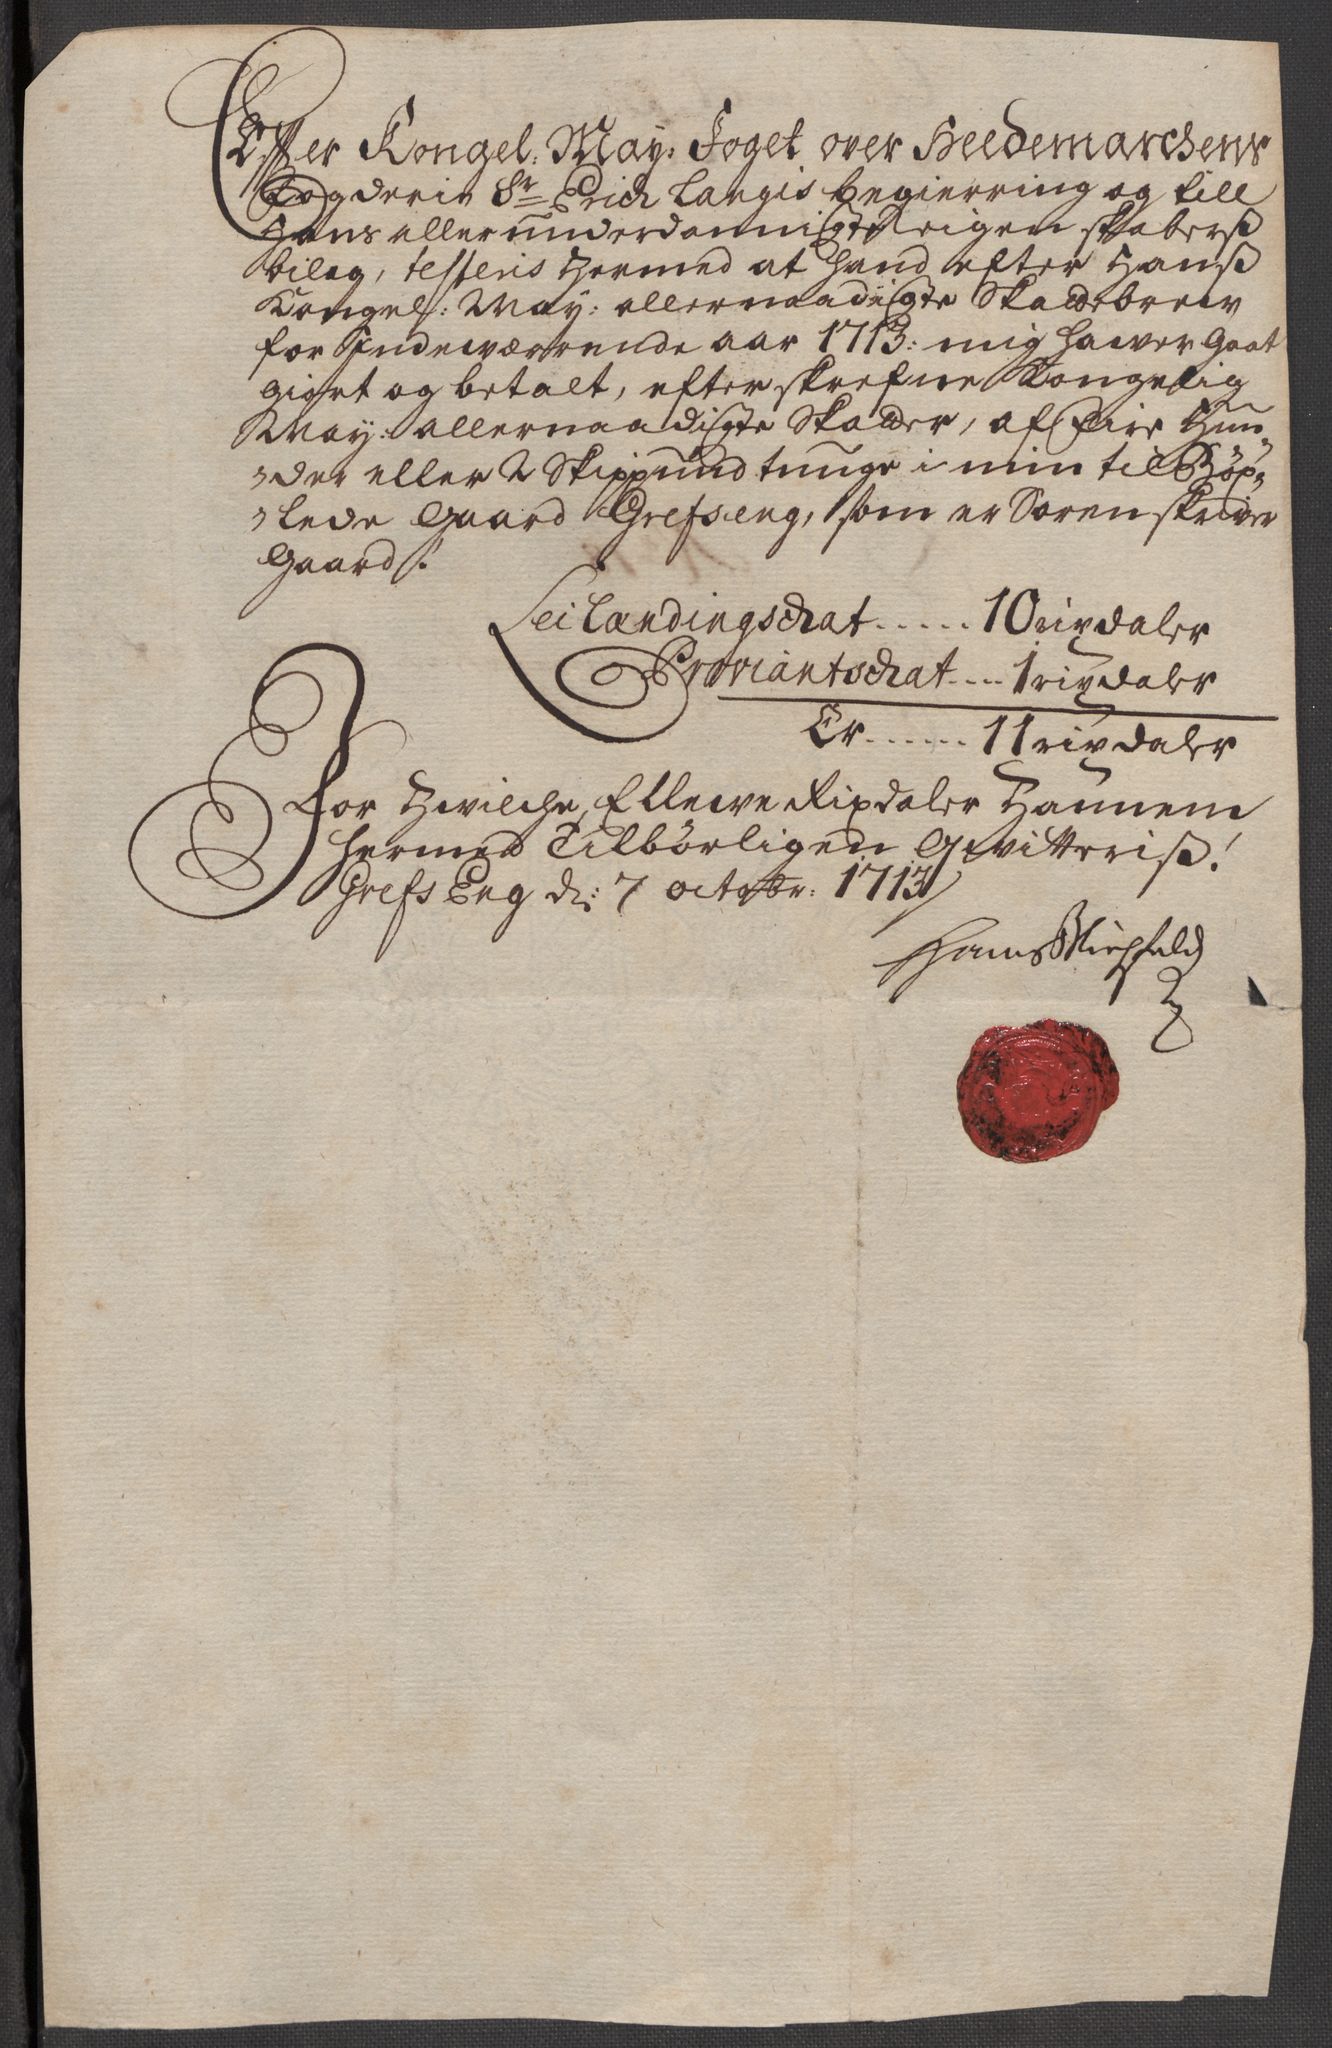 Efter Kongel: May: Foget over Heedemarchens
Fogderie Sr Erich Langis begierring og till
Hans allerunderdannigste reigenskabers
bilag, testeris hermed at hand efter Hans
Kongel: May: allernaadigste Skattebrew
for Indewærrende aar 1713: mig hawer Gaat
giort og betalt, efterskrefne Kongelig
May: allernaadigste Skatter, af fire Hun-
der eller 2 Skippund tunge i min til
lede Gaard Grefseng, som er Sorenskriver
Gaard:
Leilændingschat ..... 10 rixdaler
Proviantschat .... 1 rixdaler
Er ...... 11 rixdaler
For Hvilche, Ellewe Rixdaler Hannem
hermed Tilbörligen Qvitteris!
Grefs Eng d: 7 octobr: 1713
Hans